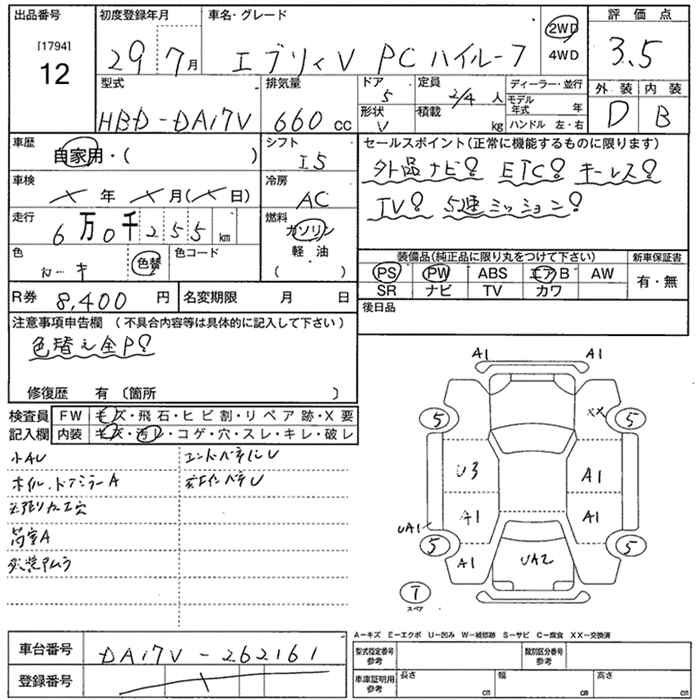 出品番号
[1794]
12
初度登録年月
29 7月
車名・グレード
エブリィV PCハイルーフ
2WD
4WD
評価点
3.5
型式
HBD-DA17V
排気量
660 cc
ドア
5
形状
V
定員
2/4 人
積載
ディーラー・並行
モデル年式 年
ハンドル 左・右
外装 内装
D B
車歴
自家用・( )
シフト
I5
セールスポイント(正常に機能するものに限ります)
外品ナビ! ETC! キーレス!
TV! 5速ミッション!
車検
× 年 × 月(× 日)
冷房
AC
走行
6万0千255 km
燃料
ガソリン
軽・油
( )
色
色替
色コード
装備品(純正品に限り丸をつけて下さい)
新車保証書
PS PW ABS エアB AW
SR ナビ TV カワ
有・無
R券 8,400 円
名変期限 月 日
後日品
注意事項申告欄 (不具合内容等は具体的に記入して下さい)
色替え全P!
修復歴 有 〔箇所 〕
検査員
記入欄
FW キズ・飛石・ヒビ割・リペア跡・X要
内装 キズ・汚レ・コゲ・穴・スレ・キレ・破レ
小AU
ホイル、ドアミラーA
荷室A
A1 A1
5 XX 5
U3 A1
A1 A1
UA1
5 5
A1 UA2
T
スペア
A-キズ E-エクボ U-凹み W-補修跡 S-サビ C-腐食 XX-交換済
車台番号
DA17V-262161
登録番号
型式指定番号
参考
類別区分番号
参考
車庫証明用
参考
長さ cm
幅 cm
高さ cm